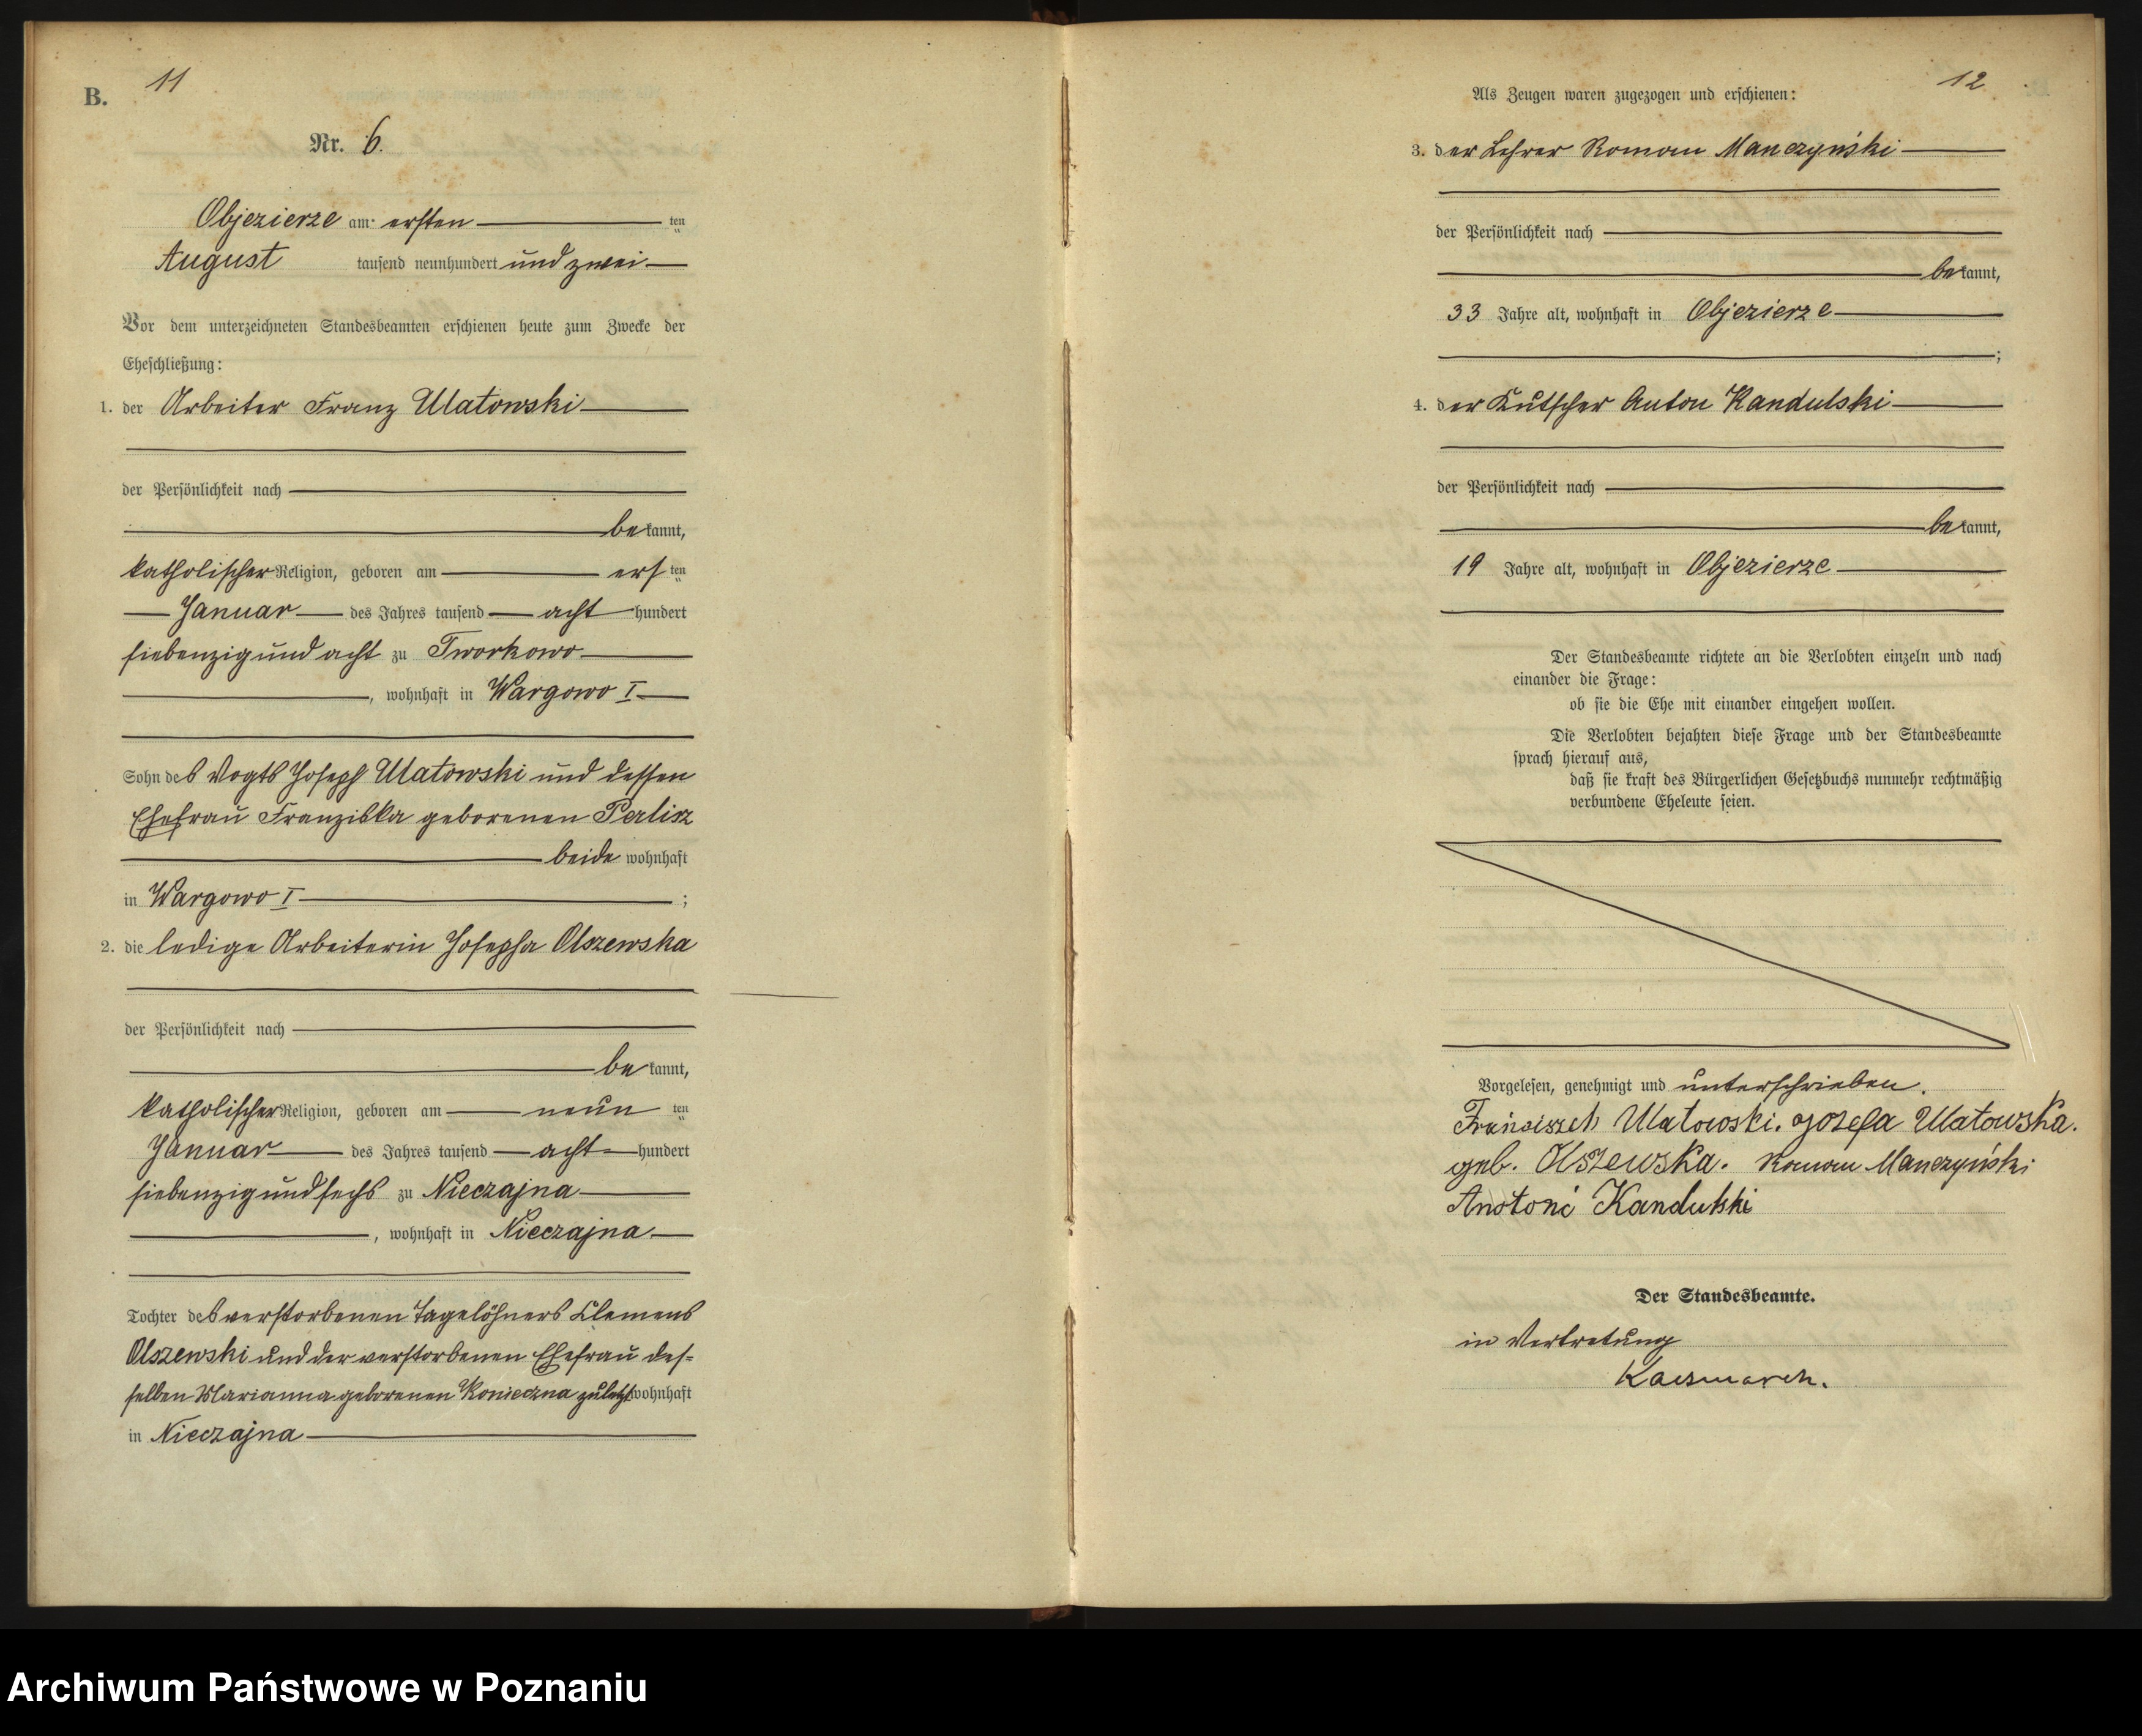 B.
11
Nr. 6.
Objezierze am ersten ten
August tausend neunhundert und zwei
Vor dem unterzeichneten Standesbeamten erschienen heute zum Zwecke der
Eheschließung:
1. der Arbeiter Franz Ulatowski
der Persönlichkeit nach
bekannt,
katholischer Religion, geboren am ersten
Januar des Jahres tausend acht hundert
siebenzig und acht zu Tworkowo
, wohnhaft in Wargowo I
Sohn des Vogts Joseph Ulatowski und dessen
Ehefrau Franziska geborenen Perlisz
beide wohnhaft
in Wargowo I ;
2. die ledige Arbeiterin Josepha Olszewska
der Persönlichkeit nach
bekannt,
katholischer Religion, geboren am neunten
Januar des Jahres tausend acht hundert
siebenzig und sechs zu Nieczajna
, wohnhaft in Nieczajna
Tochter des verstorbenen Tagelöhners Clemens
Olszewski und der verstorbenen Ehefrau des=
selben Marianna geborenen Konieczna zuletzt wohnhaft
in Nieczajna
12
Als Zeugen waren zugezogen und erschienen:
3. der Lehrer Roman Manczyński
der Persönlichkeit nach
bekannt,
33 Jahre alt, wohnhaft in Objezierze
;
4. der Kutscher Anton Kandulski
der Persönlichkeit nach
bekannt,
19 Jahre alt, wohnhaft in Objezierze
Der Standesbeamte richtete an die Verlobten einzeln und nach
einander die Frage:
ob sie die Ehe mit einander eingehen wollen.
Die Verlobten bejahten diese Frage und der Standesbeamte
sprach hierauf aus,
daß sie kraft des Bürgerlichen Gesetzbuchs nunmehr rechtmäßig
verbundene Eheleute seien.
Vorgelesen, genehmigt und unterschrieben.
Franciszek Ulatowski. Jozefa Ulatowska.
geb. Olszewska. Roman Manczyński
Anotoni Kandulski
Der Standesbeamte.
in Vertretung
Kaczmarek.
Archiwum Państwowe w Poznaniu